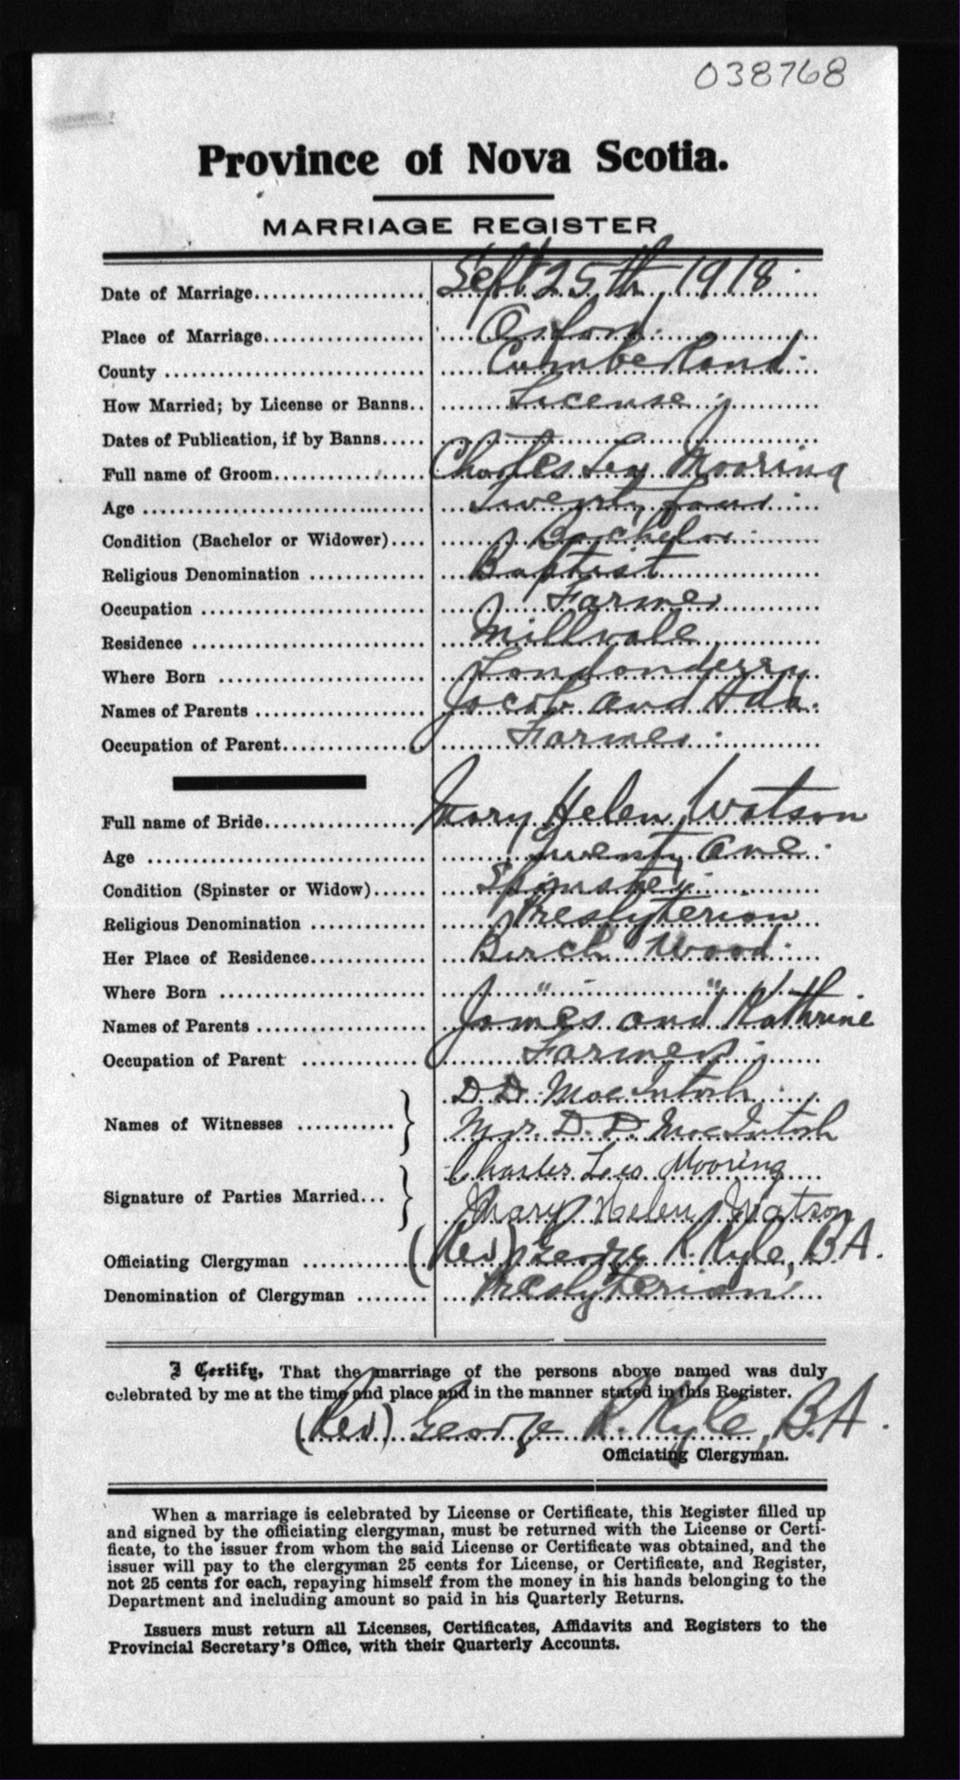 038768
Province of Nova Scotia.
MARRIAGE REGISTER
Date of Marriage.................... Sept 25th, 1918
Place of Marriage................... Oxford
County ............................. Cumberland
How Married; by License or Banns.. License
Dates of Publication, if by Banns.....
Full name of Groom.................. Charles Leo Mooring
Age ................................ Twenty four
Condition (Bachelor or Widower).... Bachelor
Religious Denomination ............. Baptist
Occupation ......................... Farmer
Residence .......................... Millvale
Where Born ......................... Londonderry
Names of Parents ................... Jacob and Ada
Occupation of Parent................ Farmer
Full name of Bride.................. Mary Helen Watson
Age ................................ Twenty One
Condition (Spinster or Widow)...... Spinster
Religious Denomination ............. Presbyterian
Her Place of Residence.............. Birch Wood
Where Born ......................... " "
Names of Parents ................... James and Kathrine
Occupation of Parent ............... Farmer
Names of Witnesses ........... } D. D. MacIntosh
Mrs. D. D. MacIntosh
Signature of Parties Married... } Charles Leo Mooring
Mary Helen Watson
Officiating Clergyman .............. (Rev) George R. Kyle, B.A.
Denomination of Clergyman ........ Presbyterian
I Certify, That the marriage of the persons above named was duly
celebrated by me at the time and place and in the manner stated in this Register.
(Rev) George R. Kyle, B.A.
Officiating Clergyman.
When a marriage is celebrated by License or Certificate, this Register filled up
and signed by the officiating clergyman, must be returned with the License or Certi-
ficate, to the issuer from whom the said License or Certificate was obtained, and the
issuer will pay to the clergyman 25 cents for License, or Certificate, and Register,
not 25 cents for each, repaying himself from the money in his hands belonging to the
Department and including amount so paid in his Quarterly Returns.
Issuers must return all Licenses, Certificates, Affidavits and Registers to the
Provincial Secretary's Office, with their Quarterly Accounts.